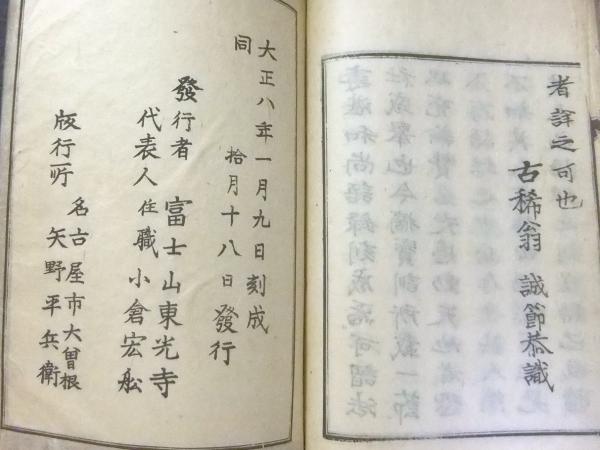 者詳之可也
古稀翁 誠節恭識
大正八年一月九日刻成
同 拾月十八日發行
發行者 富士山東光寺
代表人 住職 小倉宏舩
版行所 名古屋市大曽根
矢野平兵衛